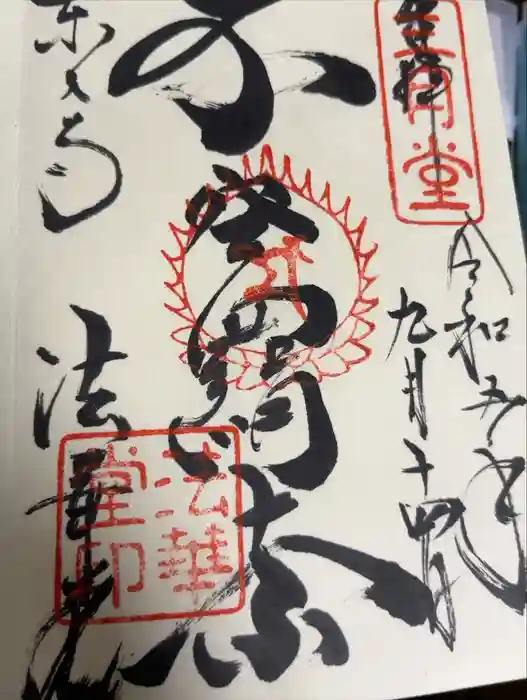 奉拝
三月堂
令和五年
九月十四日
不空羂索
東大寺
法華堂
法華
堂印